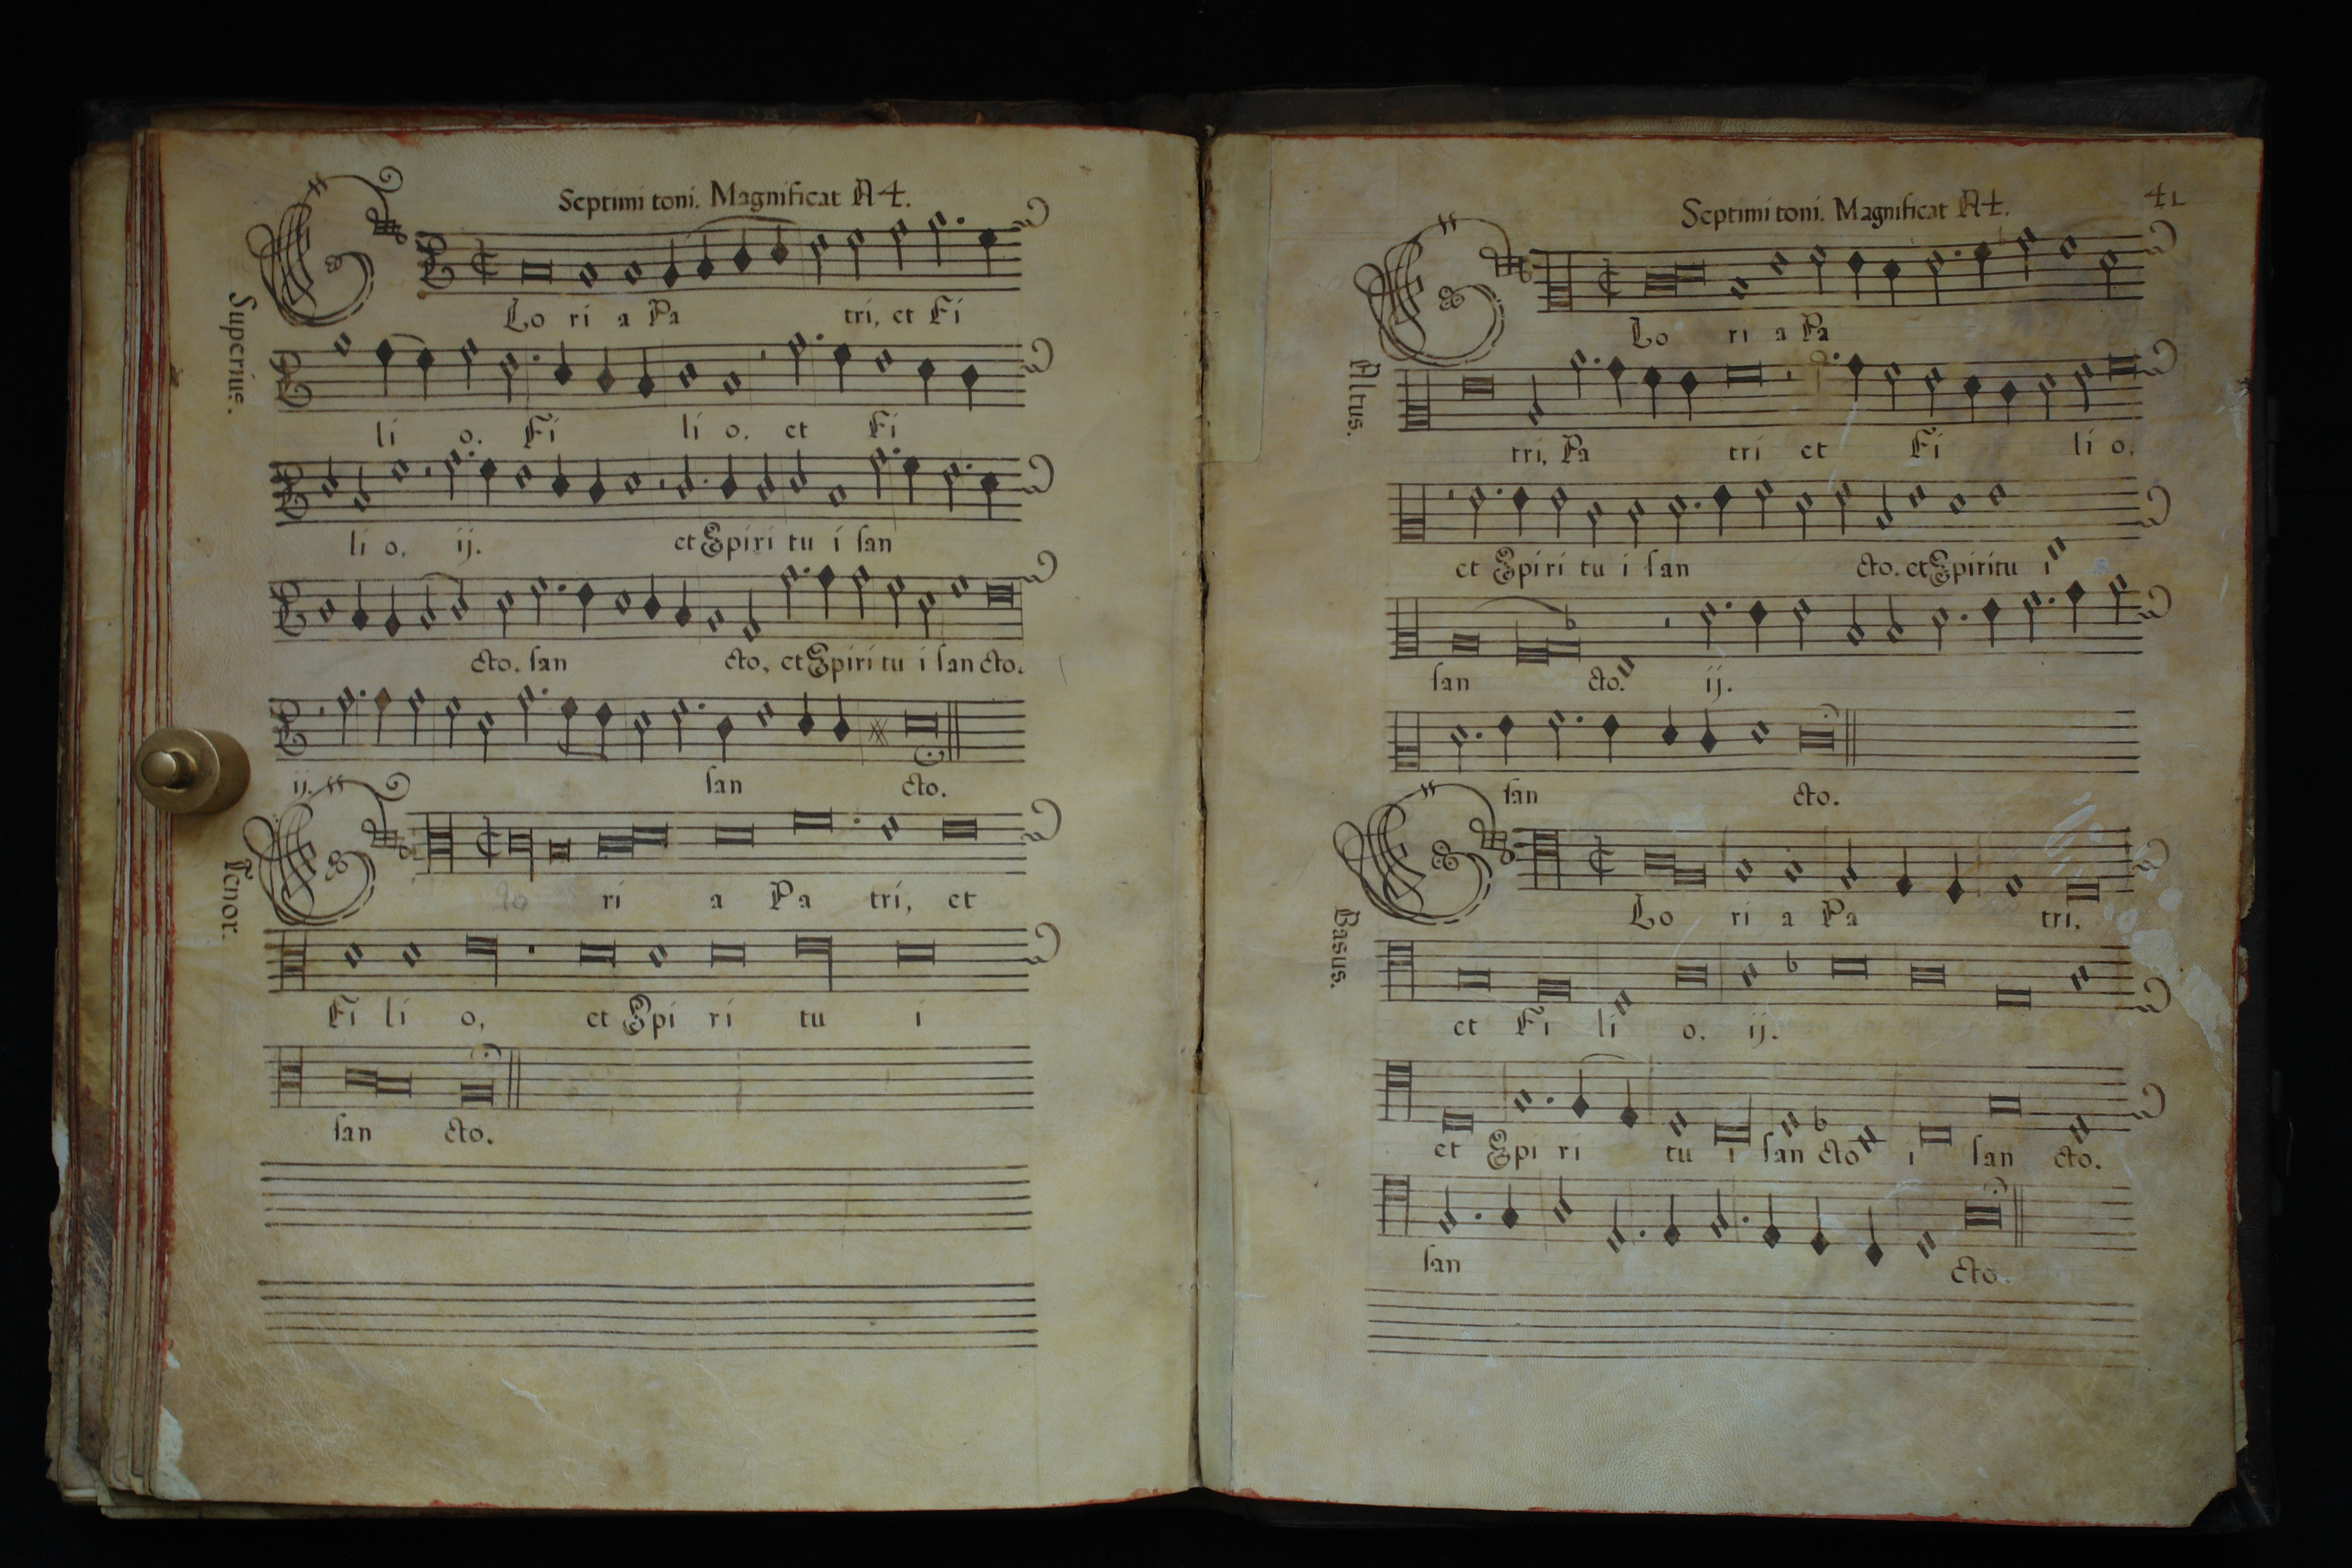 Septimi toni. Magnificat A 4.
Superius.
GLo ri a Pa tri, et Fi
li o. Fi li o, et Fi
li o, ij. et Spiri tu i san
cto, san cto, et Spiri tu i san cto.
ij. san cto.
Tenor.
G lo ri a Pa tri, et
Fi li o, et Spi ri tu i
san cto.
Septimi toni. Magnificat A 4.
41
Altus.
GLo ri a Pa
tri, Pa tri et Fi li o,
et Spi ri tu i san cto. et Spiritu i
san cto. ij.
san cto.
Bassus.
GLo ri a Pa tri,
et Fi li o. ij.
et Spi ri tu i san cto i san cto.
san cto.